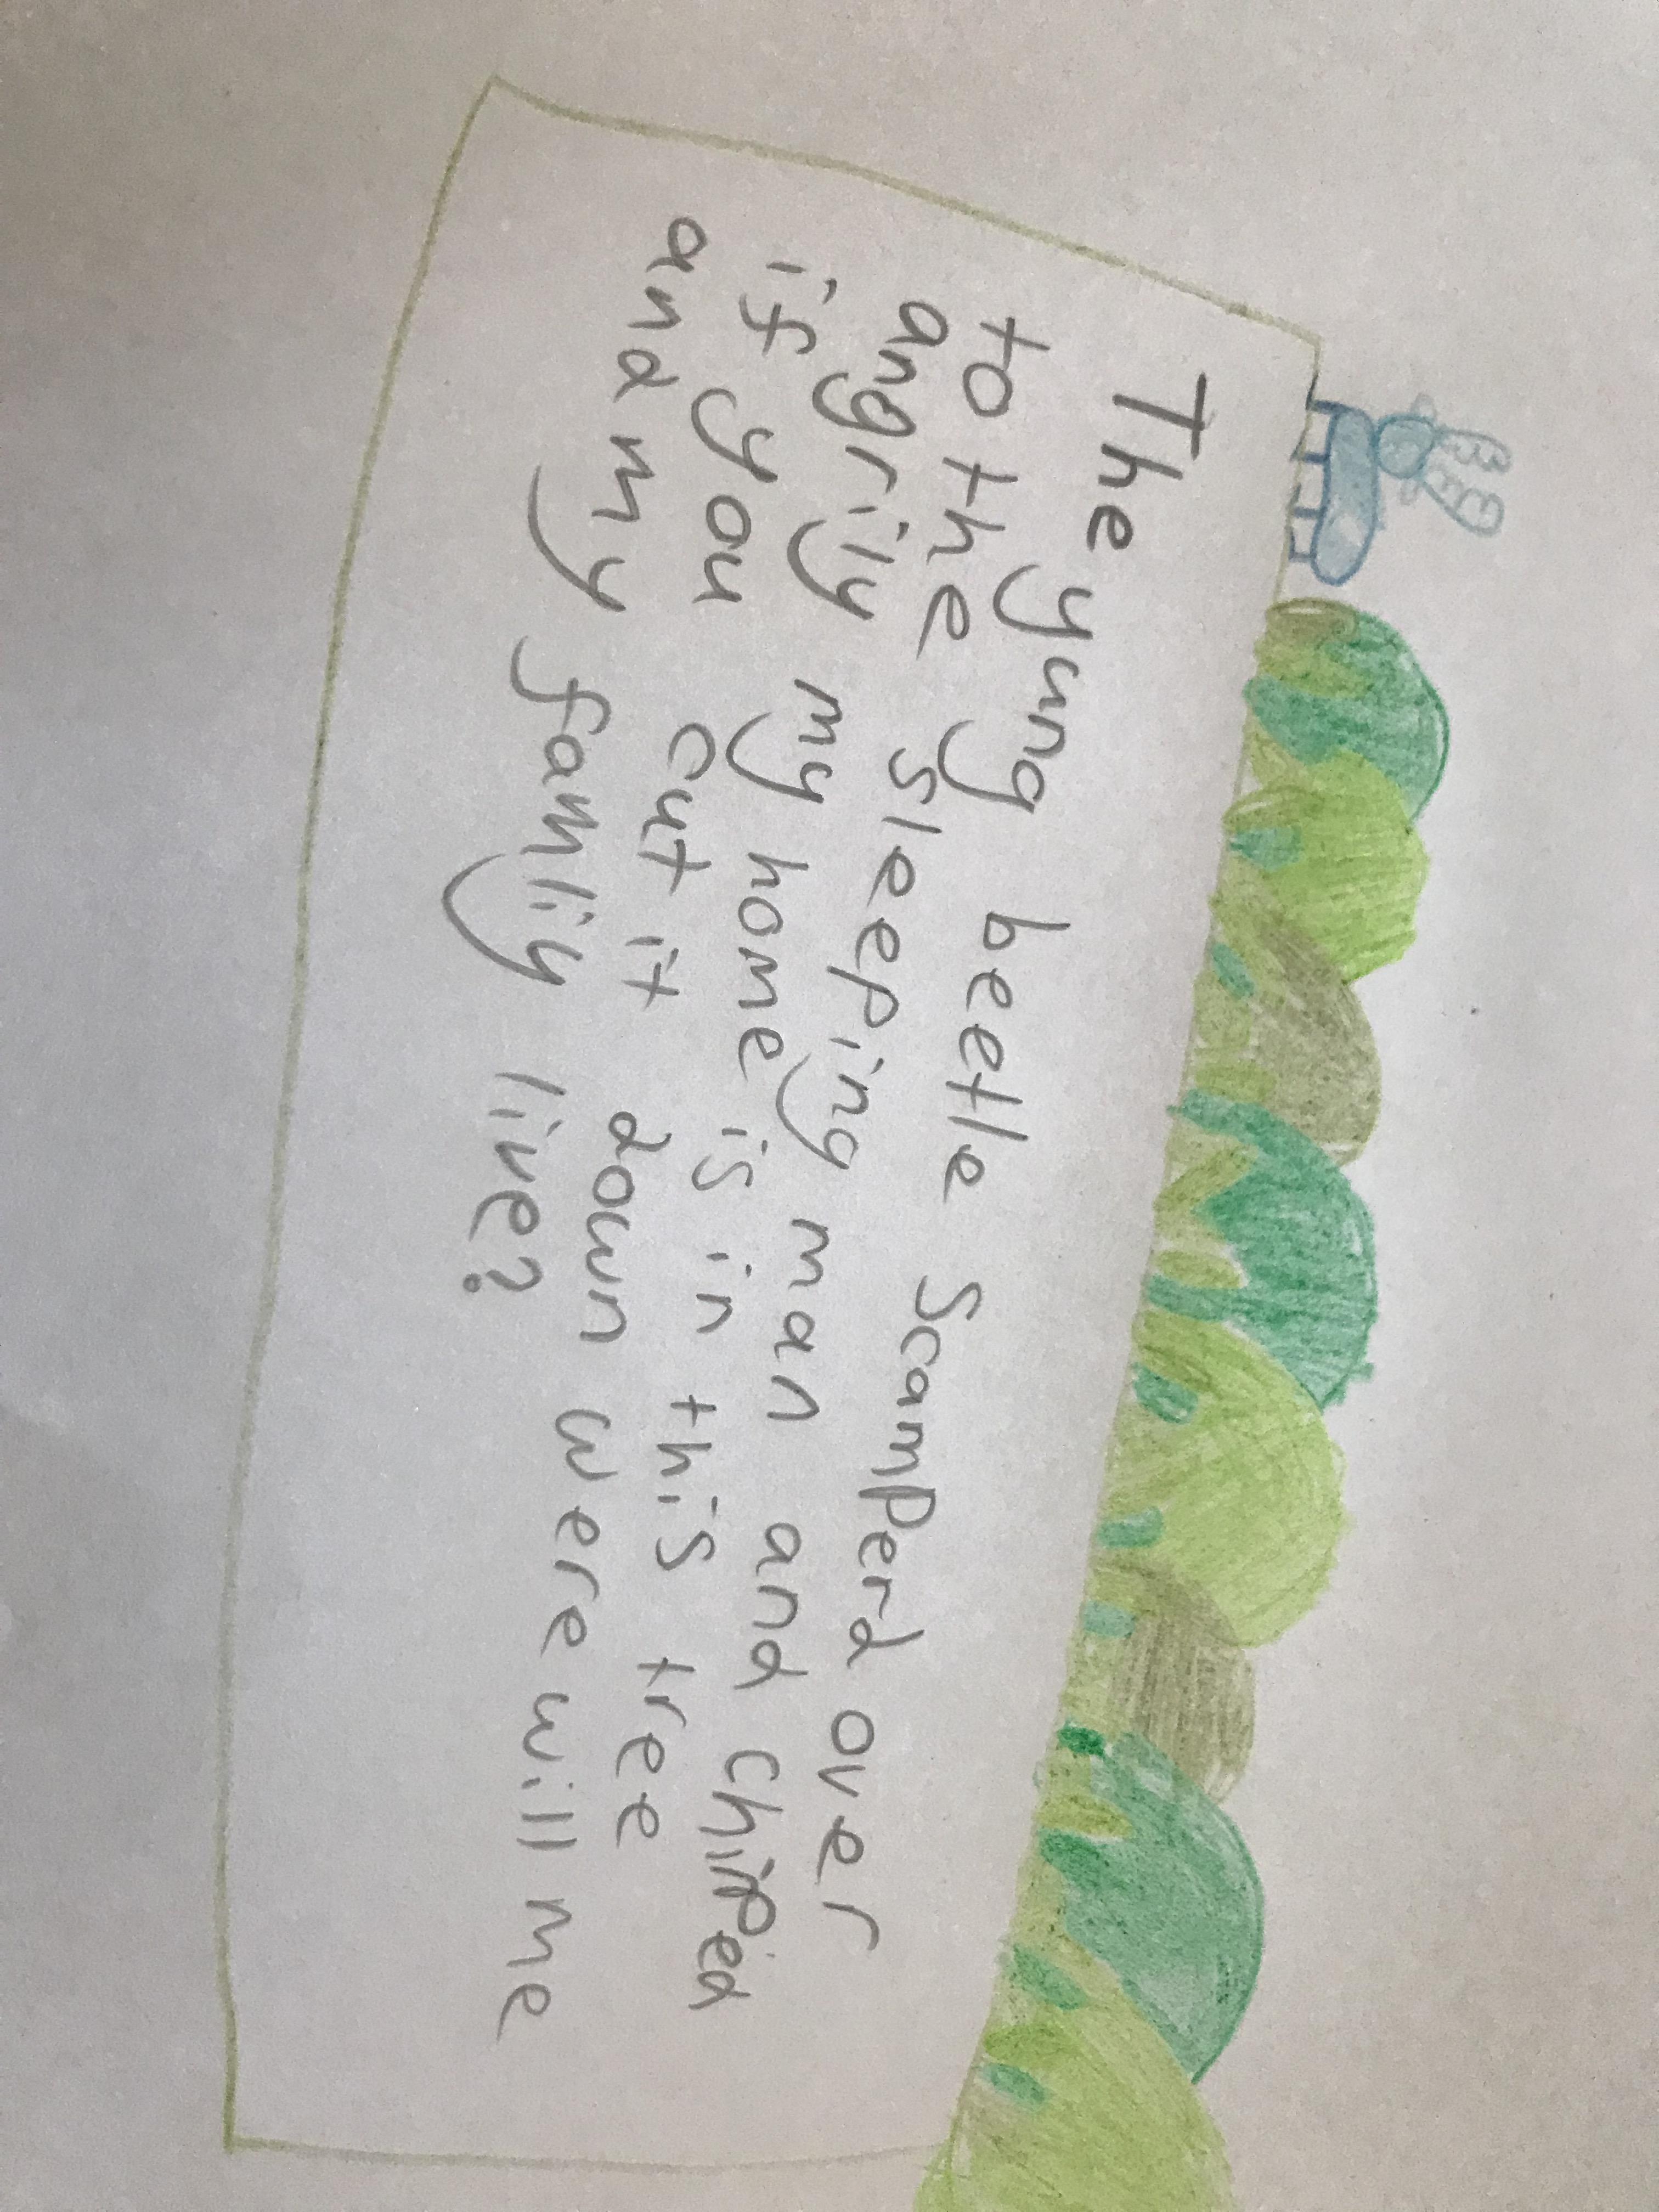 The yung beetle scamperd over
to the sleeping man and chirped
angrily my home is in this tree
if you cut it down were will me
and my famliy live?